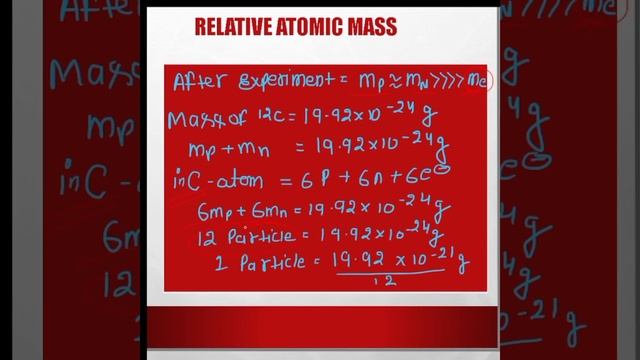 RELATIVE ATOMIC MASS
After experiment = mp ≈ mN >>>> me
Mass of 12C = 19.92 × 10⁻²⁴ g
mp + mn = 19.92 × 10⁻²⁴ g
in C-atom = 6P + 6n + 6e⊖
6mp + 6mn = 19.92 × 10⁻²⁴ g
12 Particle = 19.92 × 10⁻²⁴ g
1 Particle = 19.92 × 10⁻²¹ g
12